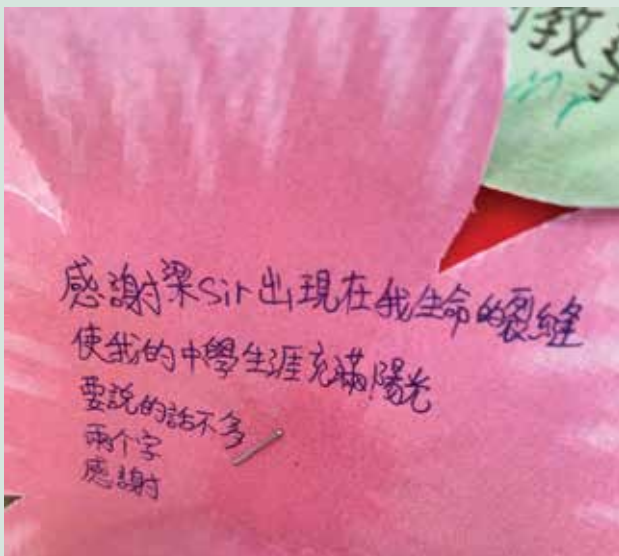 教學
感謝梁Sir出現在我生命的裂縫
使我的中學生涯充滿陽光
要說的話不多
兩个字
感謝